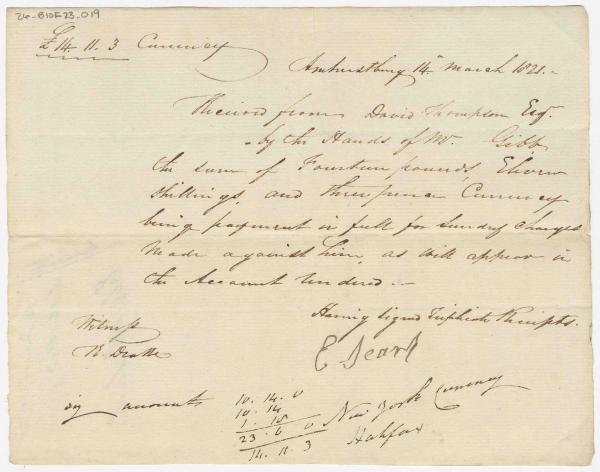 26-B10F23.019
£14. 11. 3 Currency
Amherstburg 14th March 1821.-
Received from David Thompson Esq.
by the Hands of Mr. Gibb
the sum of Fourteen pounds, Eleven
shillings, and three pence Currency
being payment in full for sundry charges
Made against him, as will appear in
the Account rendered.-
Having Signed Triplicate Receipts.
Witness
R. Drake
accounts
10. 14. 0
10. 14
1. 18
23. 6 0 New York Currency
14. 11. 3 Halifax